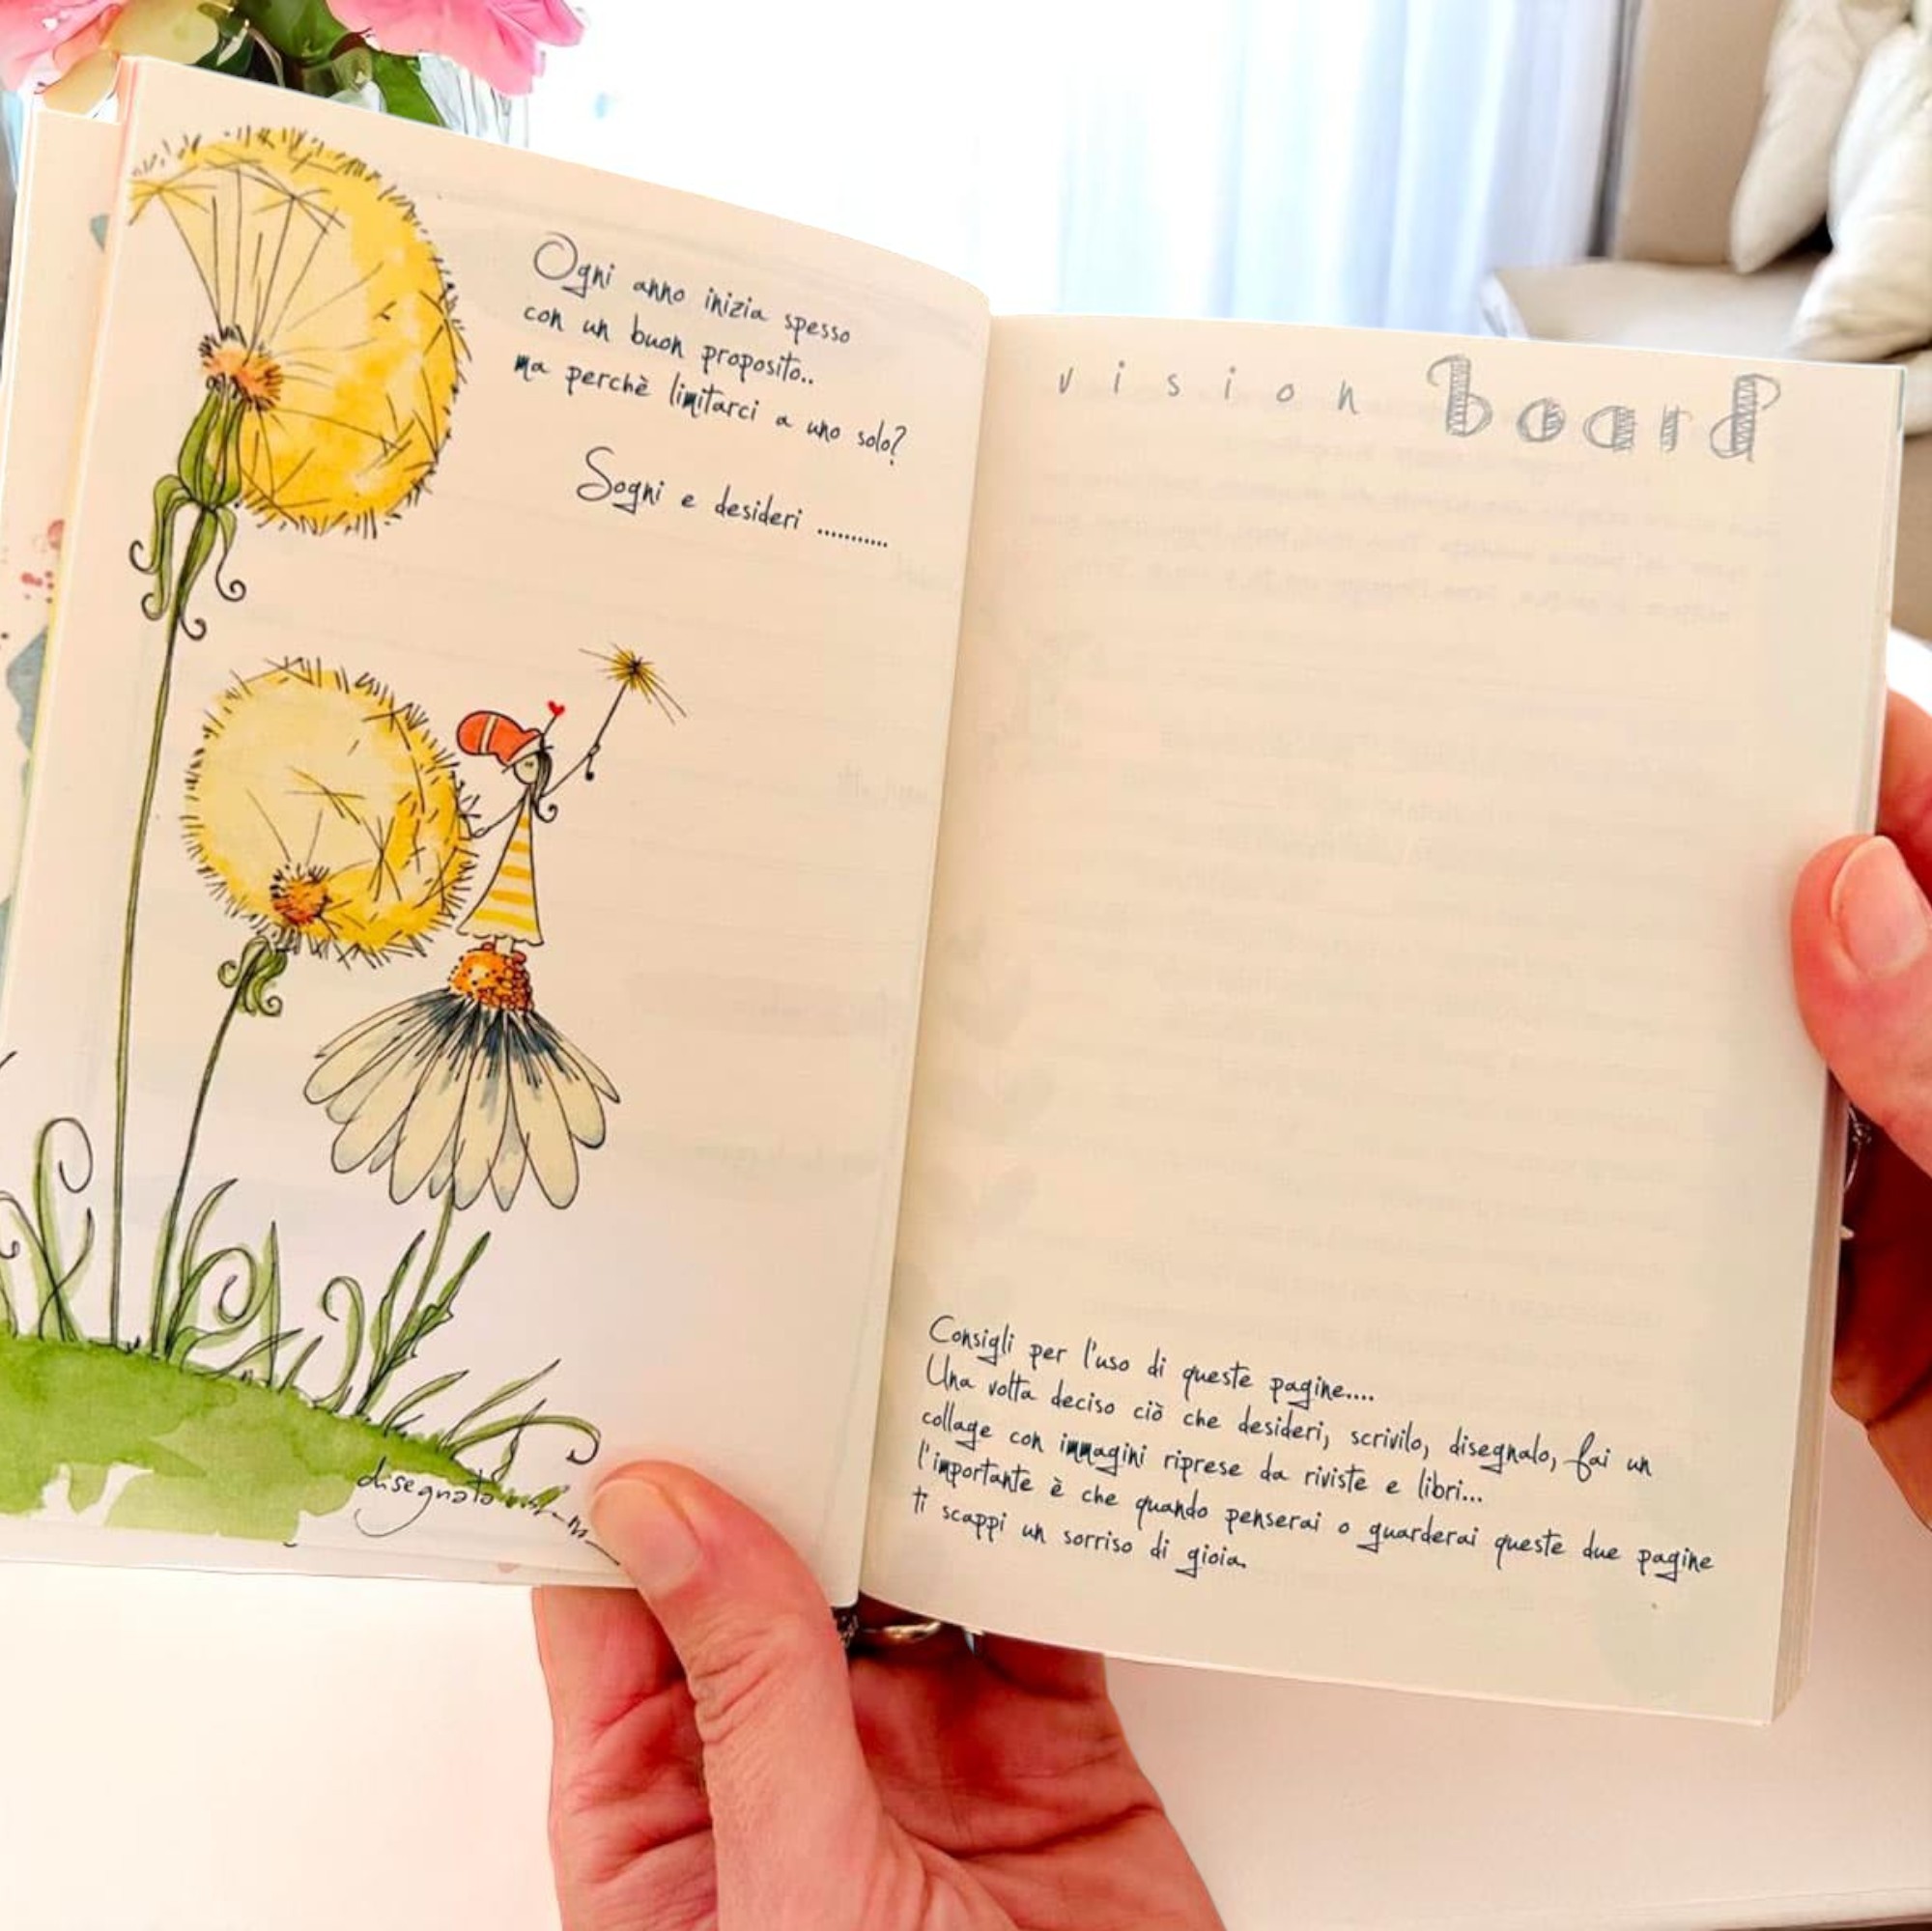 Ogni anno inizia spesso
con un buon proposito..
ma perchè limitarci a uno solo?
Sogni e desideri ...........
disegnato
vision board
Consigli per l'uso di queste pagine....
Una volta deciso ciò che desideri, scrivilo, disegnalo, fai un
collage con immagini riprese da riviste e libri...
l'importante è che quando penserai o guarderai queste due pagine
ti scappi un sorriso di gioia.